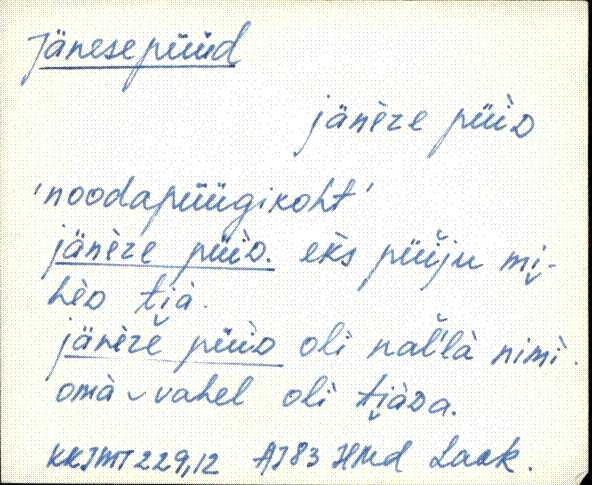 Jänesepüüd
jänèze püìD
'noodapüügikoht'
jänèze püìD. eks püüju mi-
hèD tijà.
jänèze püüD oli nal'là nimì.
omà vahel olì tijàDa.
KKIMT 229,12 AJ83 HMd Laok.